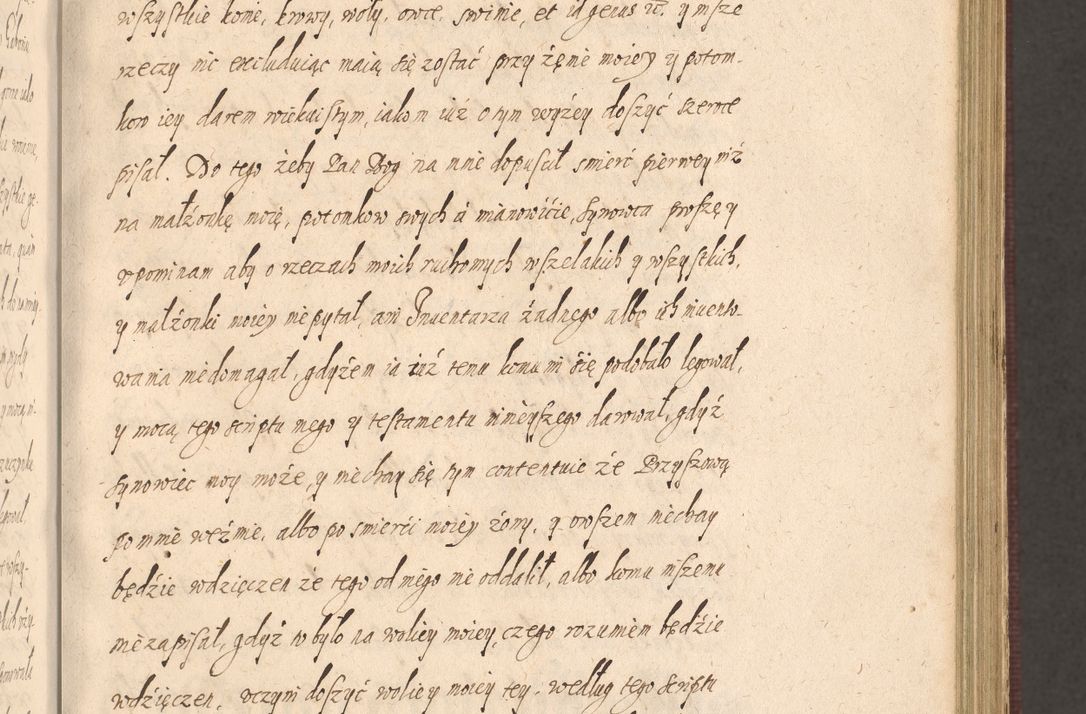 wszystkie konie, krowy, woły, owce, swinie, et id genus etc. y insze
rzeczy nic excluduiąc maią się zostać przy żęnie moiey y potom-
kow iey darem wiekuistym, iakom iuż o tym wyżey doszyć szeroce
pisał. Do tego żeby Pan Bog na mnie dopuscił smierć pierwey niż
na małżonkę moię, potomkow swych á mianowićie, synowca proszę y
vpominam aby o rzeczach moich ruchomych wszelakich y wszystkich,
y małżonki moiey nie pytał, ani Inuentarza żadnego albo ich inuento-
wania niedomagał, gdyżem ia iuż temu komu mi się podobało legował,
y mocą tego scriptu mego y testamentu ninieyszego darował, gdyż
synowiec moy może, y niechay się tym contentuie że Przyszową
po mnie weźmie, albo po smierći moiey żony, y owszem niechay
będźie wdzięczen że tego od niego nie oddalił, albo komu inszemu
nie zapisał, gdyż to było na woliey moiey, czego rozumiem będźie
wdźięczen, vczyni doszyć woliey moiey tey. według tego scriptu